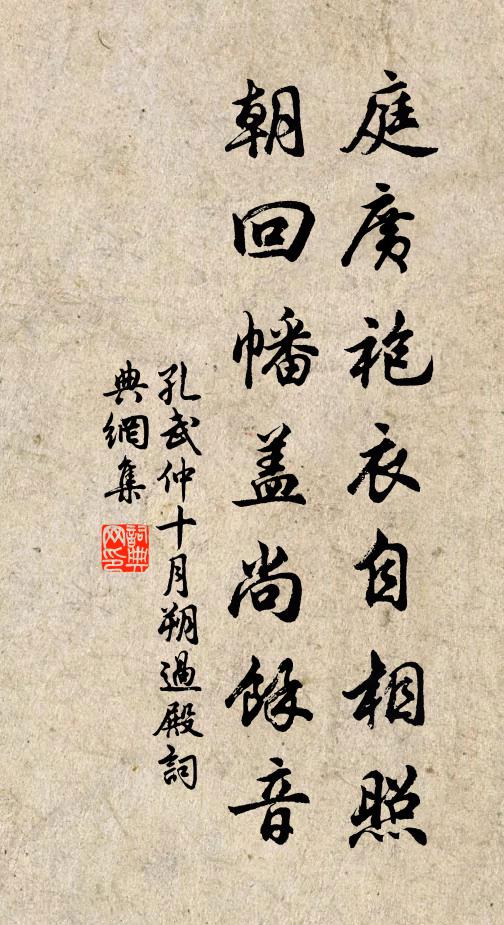 庭廣袍衣自相照
朝回幡蓋尚餘音
孔武仲十月朔過殿詞
典網集
詞典網印